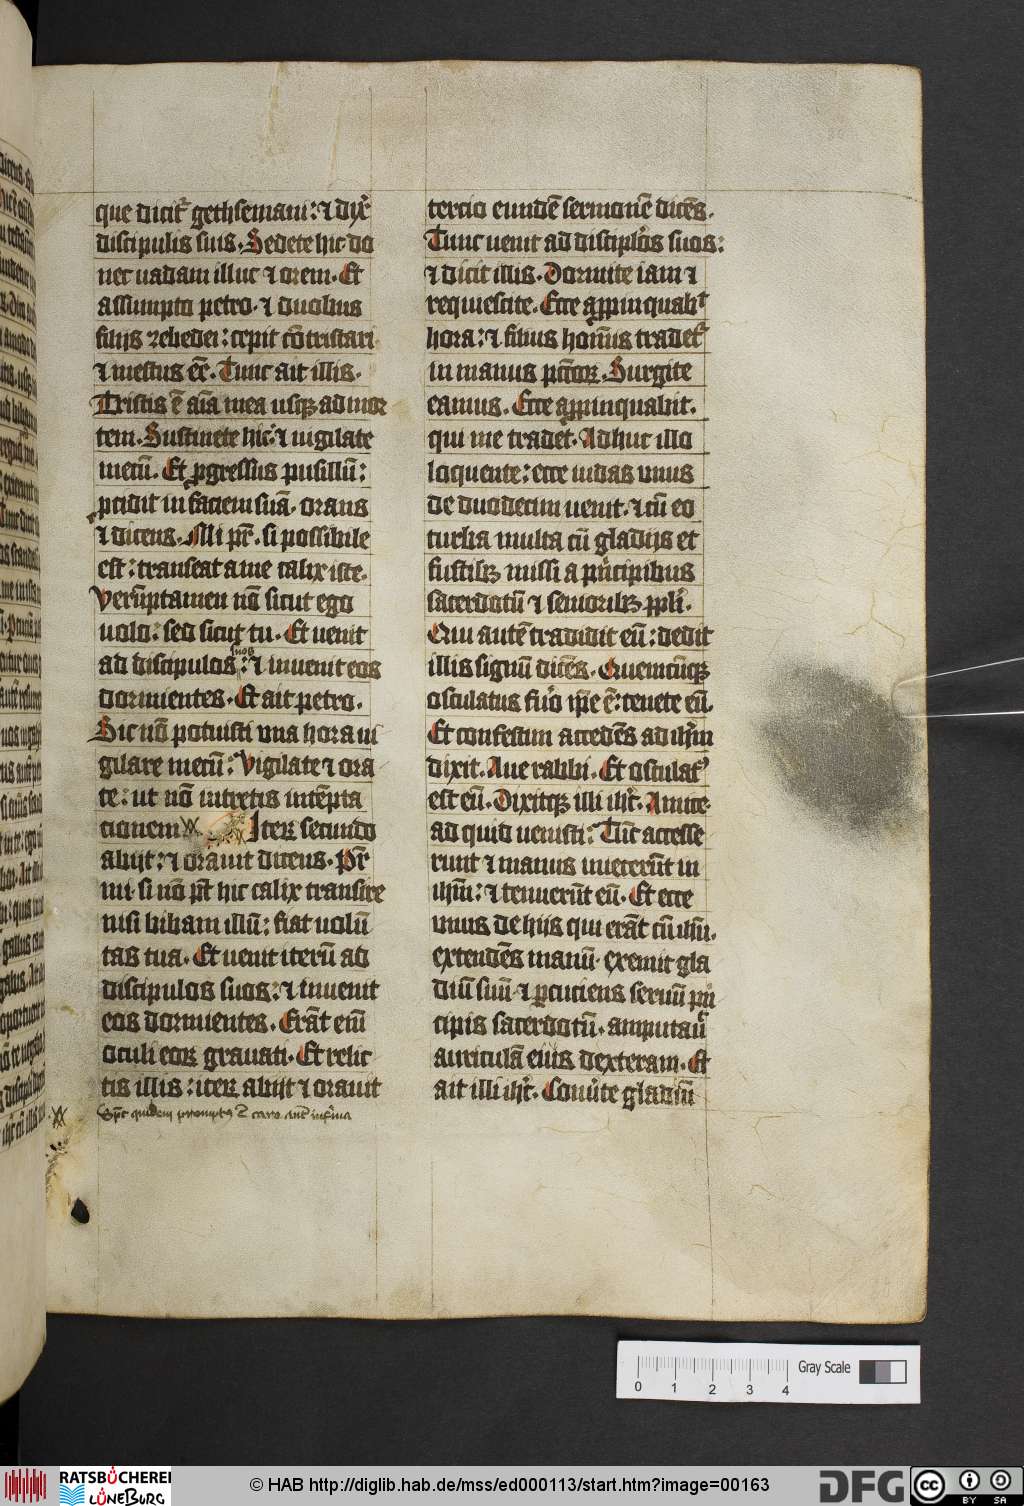 que dicit᷑ gethsemani: ⁊ dix᷑
discipulis suis. Sedete hic do
nec uadam illuc ⁊ orem. Et
assumpto petro. ⁊ duobus
filijs zebedei: cepit cōtristari
⁊ mestus eē. Tunc ait illis.
Tristis ē aīa mea usqꝫ ad mor
tem. Sustinete hic. ⁊ uigilate
mecū. Et ꝓgressus pusillū:
pcidit in faciem suā. orans
⁊ dicens. Mi pr̄. si possibile
est: transeat a me calix iste.
Verūptamen nō sicut ego
uolo: sed sicut tu. Et uenit
ad discipulos suos: ⁊ inuenit eos
dormientes. Et ait petro.
Sic nō potuisti vna hora ui
gilare mecū: Vigilate ⁊ ora
te: ut nō intretis intēpta
cionem Iteꝝ secundo
abijt: ⁊ orauit dicens. Pr̄
mi. si nō pt̄ hic calix transire
nisi bibam illū: fiat uolū
tas tua. Et uenit iterū ad
discipulos suos: ⁊ inuenit
eos dormientes. Erāt enī
oculi eoꝝ grauati. Et relic
tis illis: iteꝝ abijt ⁊ orauit
Sp̄c quidem promptꝰ ē caro aut̄ infirma
tercio eundē sermonē dicēs.
Tunc uenit ad disciplos suos:
⁊ dicit illis. Dormite iam ⁊
requiescite. Ecce appinquabit
hora: ⁊ filius hoīnis tradet᷑
in manus pctōꝝ. Surgite
eamus. Ecce appinquabit.
qui me tradet. Adhuc illo
loquente: ecce iudas vnus
de duodecim uenit. ⁊ cū eo
turba multa cū gladijs et
fustibꝫ missi a pincipibus
sacerdotū ⁊ senioribꝫ ppli.
Qui autē tradidit eū: dedit
illis signū dicēs. Quemcūqꝫ
osculatus fuo ip̄e ē: tenete eū.
Et confestim accedēs ad ihm
dixit. Aue rabbi. Et osculatꝰ
est eū. Dixitqꝫ illi ihc. Amice
ad quid uenisti: Tūc accesse
runt ⁊ manus iniecerūt in
ihm̄: ⁊ tenuerūt eū. Et ecce
vnus de hijs qui erāt cū ihū.
extendēs manū. exemit gla
diū suū ⁊ ꝑcuciens seruū pin
cipis sacerdotū. amputauit
auriculā eius dexteram. Et
ait illi ihc. Conute gladiū
0 1 2 3 4
Gray Scale
RATSBÜCHEREI
LÜNEBURG
© HAB http://diglib.hab.de/mss/ed000113/start.htm?image=00163
DFG
cc BY SA